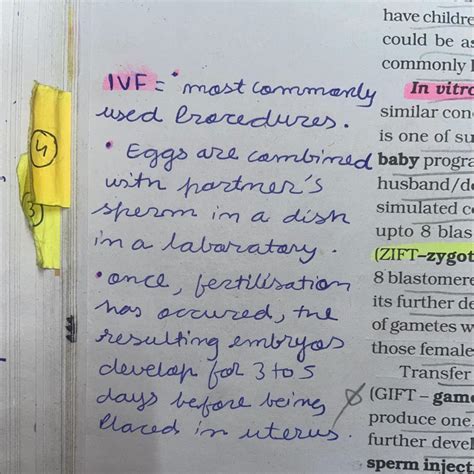 have childre
could be as
commonly
IVF = • most commonly
used Procedures.
• Eggs are combined
with partner's
sperm in a dish
in a laboratory.
• once, fertilisation
has occured, the
resulting embryos
develop for 3 to 5
days before being
Placed in uterus.
4
3
In vitro
similar con
is one of su
baby progra
husband/do
simulated co
upto 8 blas
(ZIFT–zygot
8 blastomere
its further de
of gametes w
those female
Transfer
(GIFT – game
produce one,
further devel
sperm inject